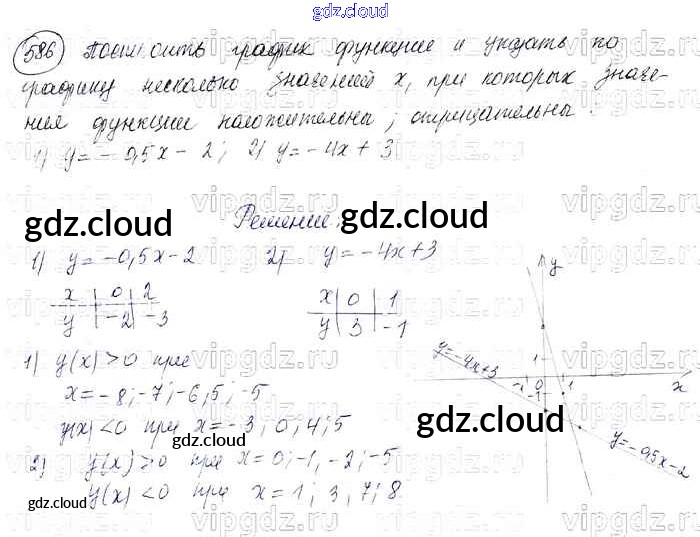 gdz.cloud
586 Построить график функции и указать по
графику несколько значений x, при которых значе-
ния функции положительны; отрицательны.
1) y = -0,5x - 2; 2) y = -4x + 3
Решение:
1) y = -0,5x - 2 2) y = -4x + 3
x 0 2 x 0 1
y -2 -3 y 3 -1
1) y(x) > 0 при
x = -8; -7; -6,5; -5
y(x) < 0 при x = -3; 0; 4; 5
2) y(x) > 0 при x = 0; -1, -2; -5
y(x) < 0 при x = 1; 3, 7; 8.
y
1
-1 0 1
-1
x
y = -4x + 3
y = -0,5x - 2
gdz.cloud
gdz.cloud
gdz.cloud
gdz.cloud
gdz.cloud
vipgdz.ru